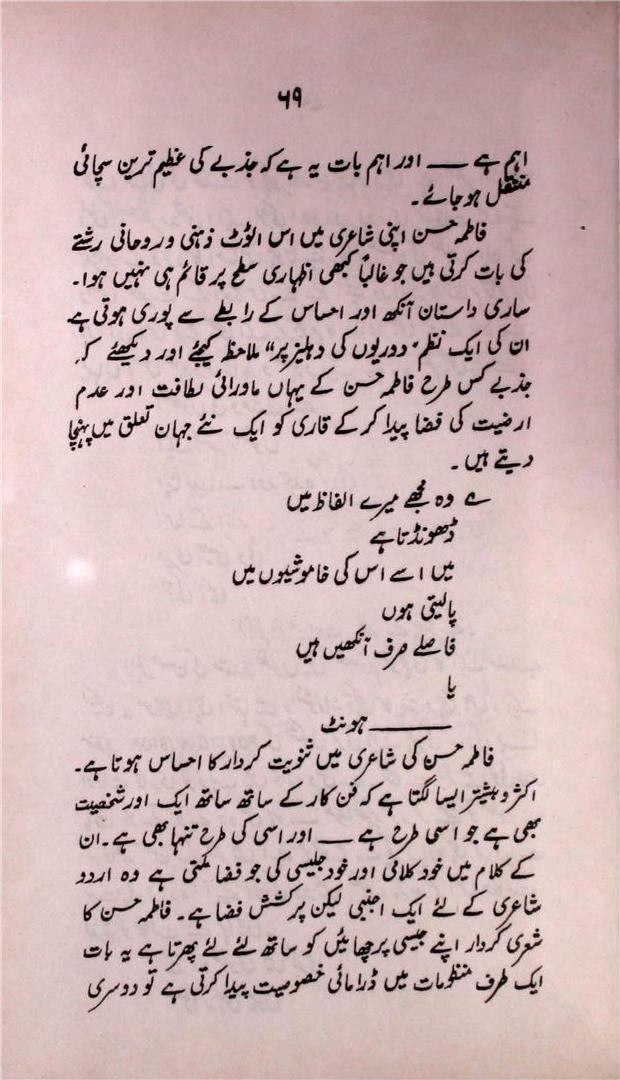 ۶۹
اہم ہے —— اور اہم بات یہ ہے کہ جذبے کی عظیم ترین سچائی
منتقل ہو جائے۔
فاطمہ حسن اپنی شاعری میں اس الوٹ ذہنی و روحانی رشتے
کی بات کرتی ہیں جو غالباً کبھی اظہاری سطح پر قائم ہی نہیں ہوا۔
ساری داستان آنکھ اور احساس کے رابطے سے پوری ہوتی ہے
ان کی ایک نظم "دوریوں کی دہلیز پر" ملاحظہ کیجئے اور دیکھئے کہ
جذبے کس طرح فاطمہ حسن کے یہاں ماورائی لطافت اور عدم
ارضیت کی فضا پیدا کر کے قاری کو ایک نئے جہان تعلق میں پہنچا
دیتے ہیں۔
؎ وہ مجھے میرے الفاظ میں
ڈھونڈتا ہے
میں اسے اس کی خاموشیوں میں
پا لیتی ہوں
فاصلے صرف آنکھیں ہیں
یا
———— ہونٹ
فاطمہ حسن کی شاعری میں ثنویت کردار کا احساس ہوتا ہے۔
اکثر و بیشتر ایسا لگتا ہے کہ فن کار کے ساتھ ساتھ ایک اور شخصیت
بھی ہے جو اسی طرح ہے —— اور اسی کی طرح تنہا بھی ہے۔ ان
کے کلام میں خود کلامی اور خود جلیسی کی جو فضا ملتی ہے وہ اردو
شاعری کے لئے ایک اجنبی لیکن پرکشش فضا ہے۔ فاطمہ حسن کا
شعری کردار اپنے جیسی پرچھائیں کو ساتھ لئے لئے پھرتا ہے یہ بات
ایک طرف منظومات میں ڈرامائی خصوصیت پیدا کرتی ہے تو دوسری